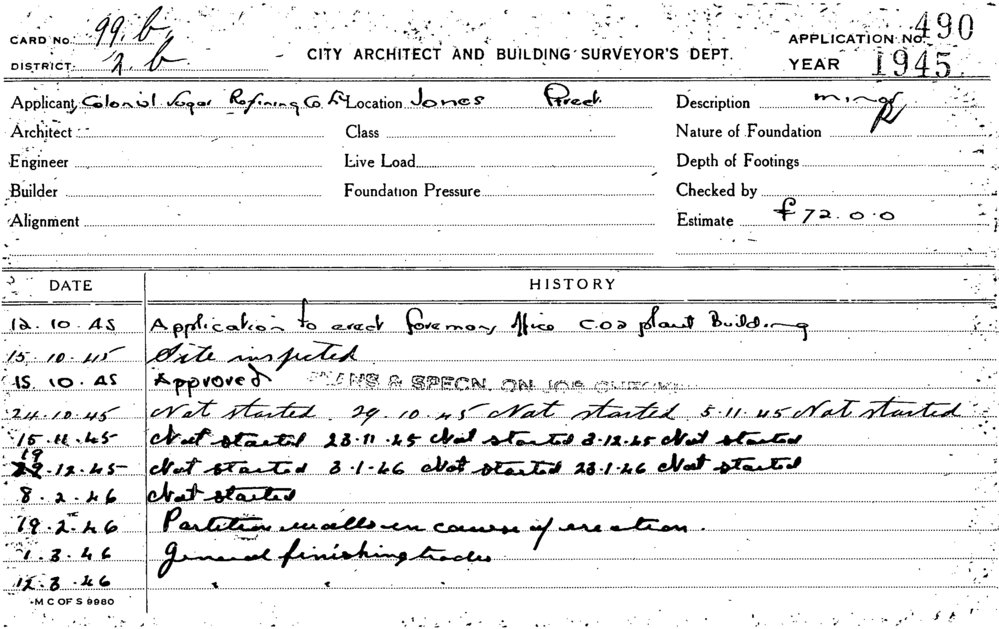 CARD No. 99.b. CITY ARCHITECT AND BUILDING SURVEYOR'S DEPT. APPLICATION No. 490
DISTRICT 2.b YEAR 1945
Applicant Colonial Sugar Refining Co. Ltd Location Jones Street. Description minor
Architect Class Nature of Foundation
Engineer Live Load Depth of Footings
Builder Foundation Pressure Checked by
Alignment Estimate £72.0.0
DATE HISTORY
12.10.45 Application to erect foremans office CO2 plant Building
15.10.45 Site inspected
15.10.45 Approved PLANS & SPECN. ON JOB CHECKED
24.10.45 Not started. 29.10.45 Not started 5.11.45 Not started
15.11.45 Not started 23.11.45 Not started 3.12.45 Not started
19.12.45 Not started 3.1.46 Not started 23.1.46 Not started
8.2.46 Not started
19.2.46 Partition walls in course of erection.
1.3.46 General finishing trades
12.3.46 " " "
M C OF S 9980